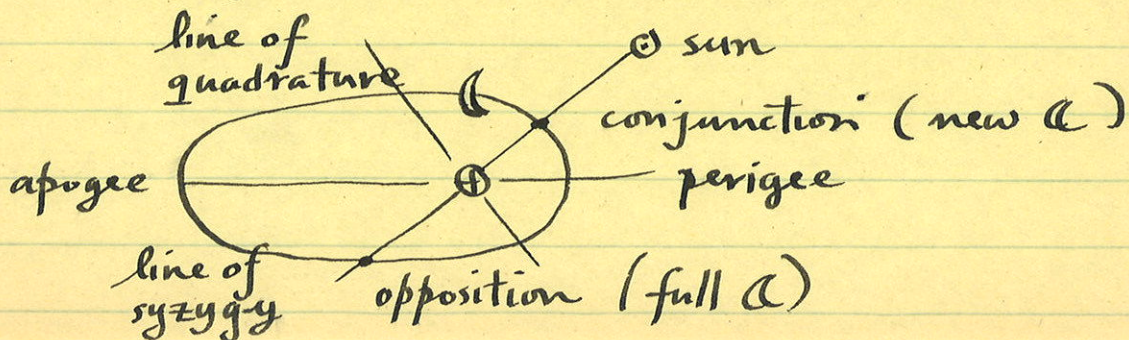 line of
quadrature
☉ sun
conjunction (new ☾)
apogee
⊕
perigee
line of
syzygy
opposition (full ☾)